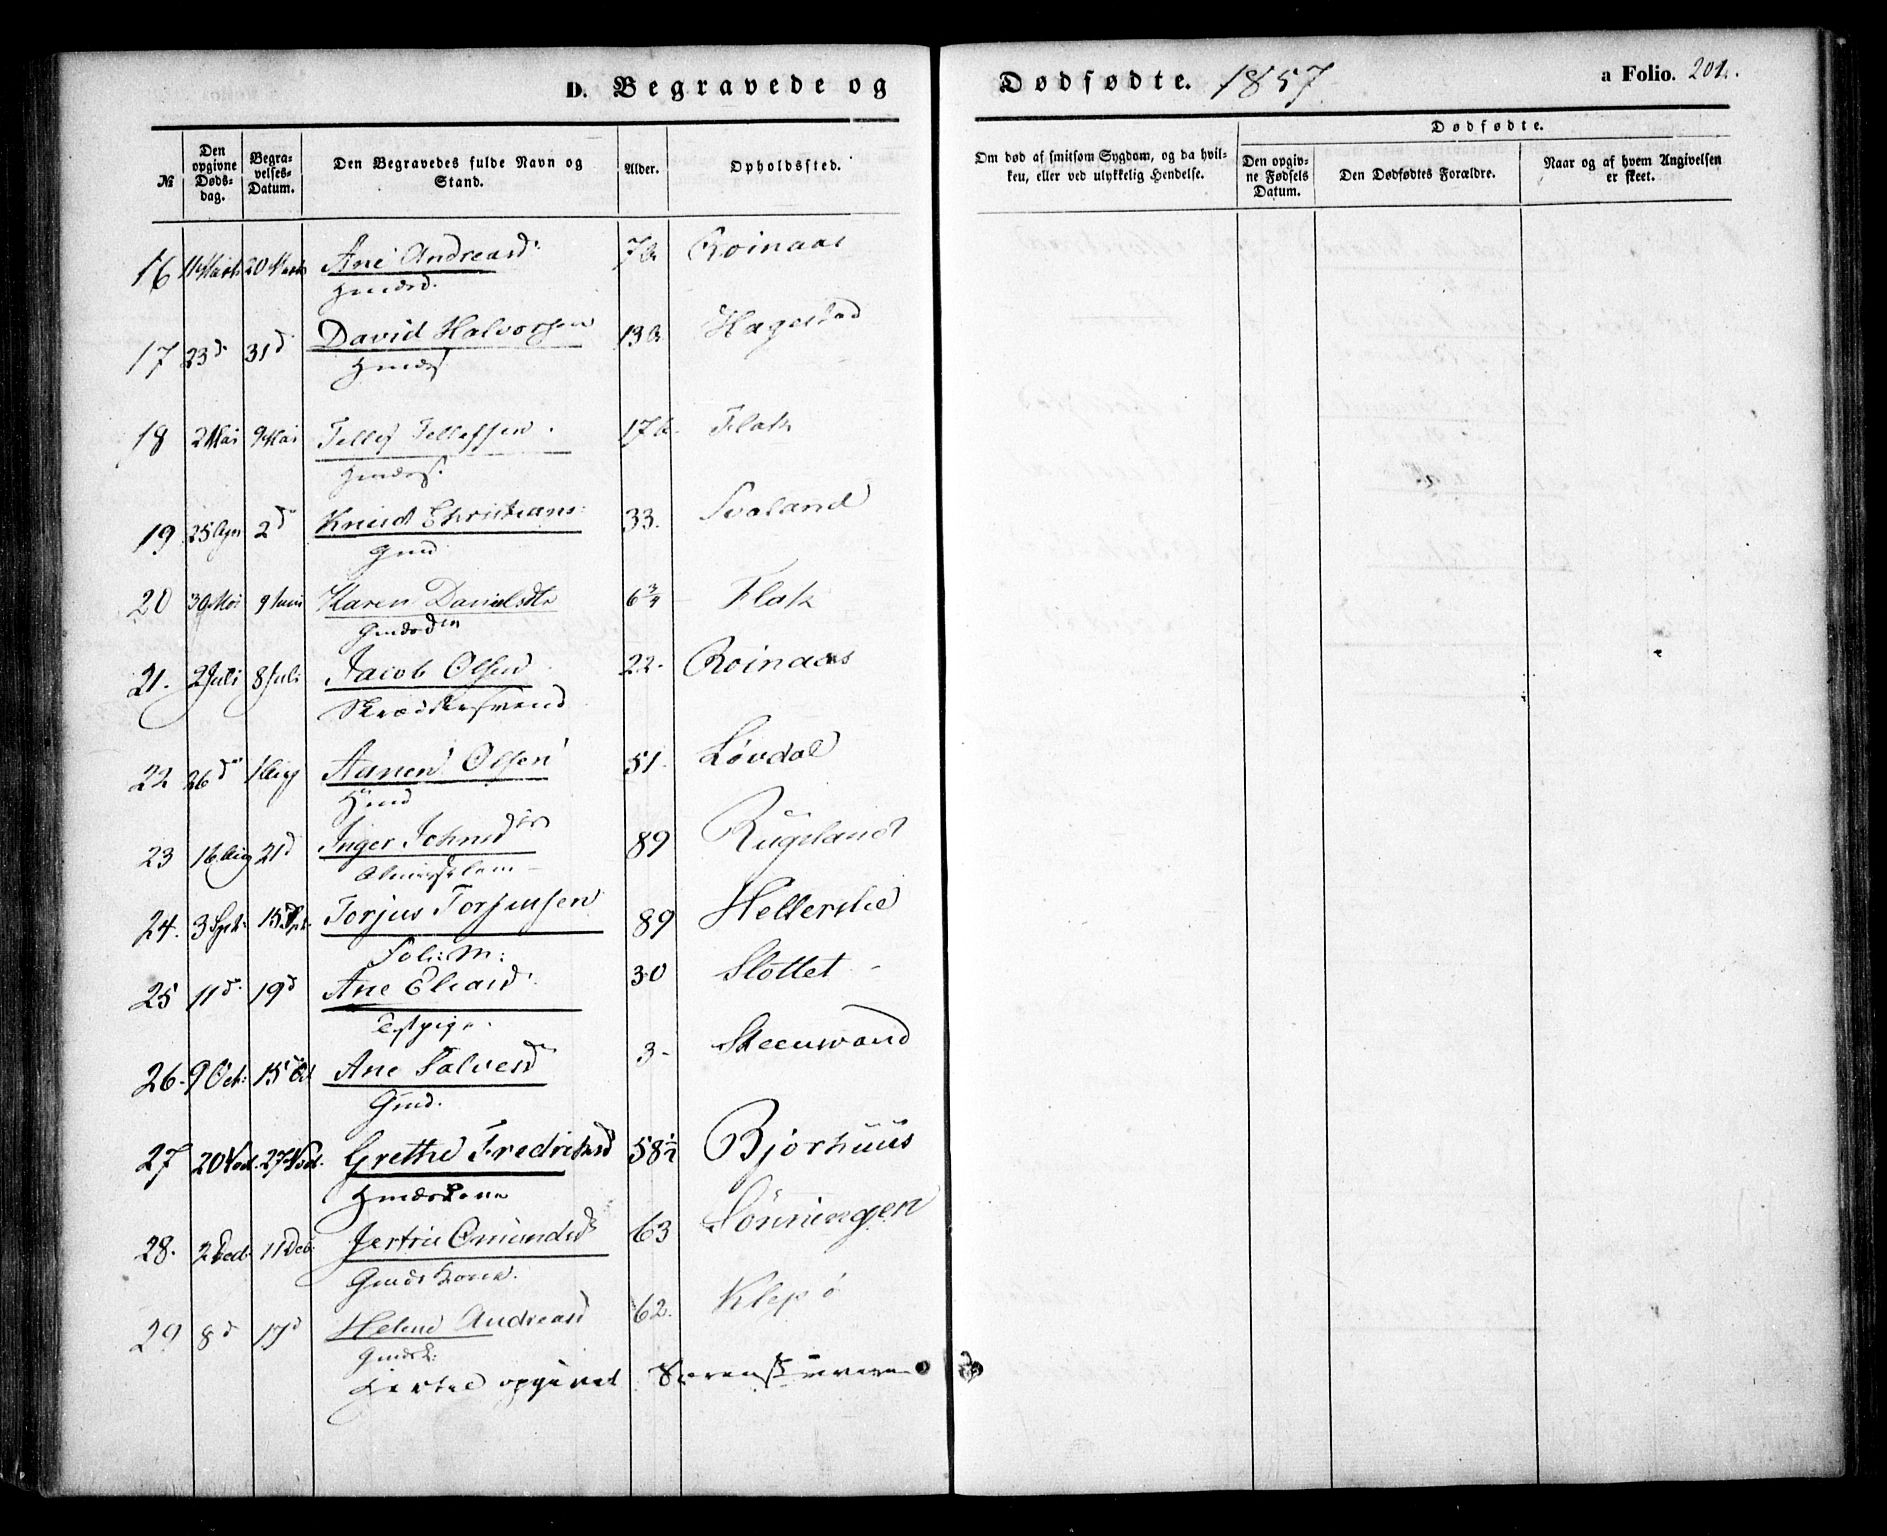 D. Begravede og Dødfødte. 1857 a Folio. 201.
№
Den opgivne Dødsdag.
Begravelses-Datum.
Den Begravedes fulde Navn og Stand.
Alder.
Opholdssted.
Om død af smitsom Sygdom, og da hvilken, eller ved ulykkelig Hendelse.
Dødfødte.
Den opgivne Fødsels Datum.
Den Dødfødtes Forældre.
Naar og af hvem Angivelsen er skeet.
16 11 Marts 20 Marts Ane Andreasd. Roinaas
17 23 d 31 d David Halvorsen Hagestad
18 2 Mai 9 Mai Tellef Tellefsen Flak
19 25 2 d Knud Christians: 33. Svaland
Gmd
20 30 Mai 9 Juni Karen Danielsdtr 6 3/4 Flak
21. 2 Juli 8 Juli Jacob Olsen 22. Roinaas
22 26 d 1 Aug Aanen Olsen 51. Løvdal
Hmd
23 16 Aug 21 d Inger Johnsd 89 Rugsland
24. 3 Sept. 15 Sept. Torjus Torjusen 89
Fol: M:
25 11 d 19 d Ane Eliasd 30 Slottet
26. 9 Oct: 15 Oct Ane Salvesd 3 Skeenvand
Gmd.
27 20 Nov. 27 Nov. Grethe Fredriksd 58 1/2 Bjorhuus
Hmdskone
28. 2 Dec. 11 Dec. Omundsd 63 Sønningen
Gmdskone.
29 8 d 17 d Helene Andreasd 62. Klep
Gmdsk:
opgivet